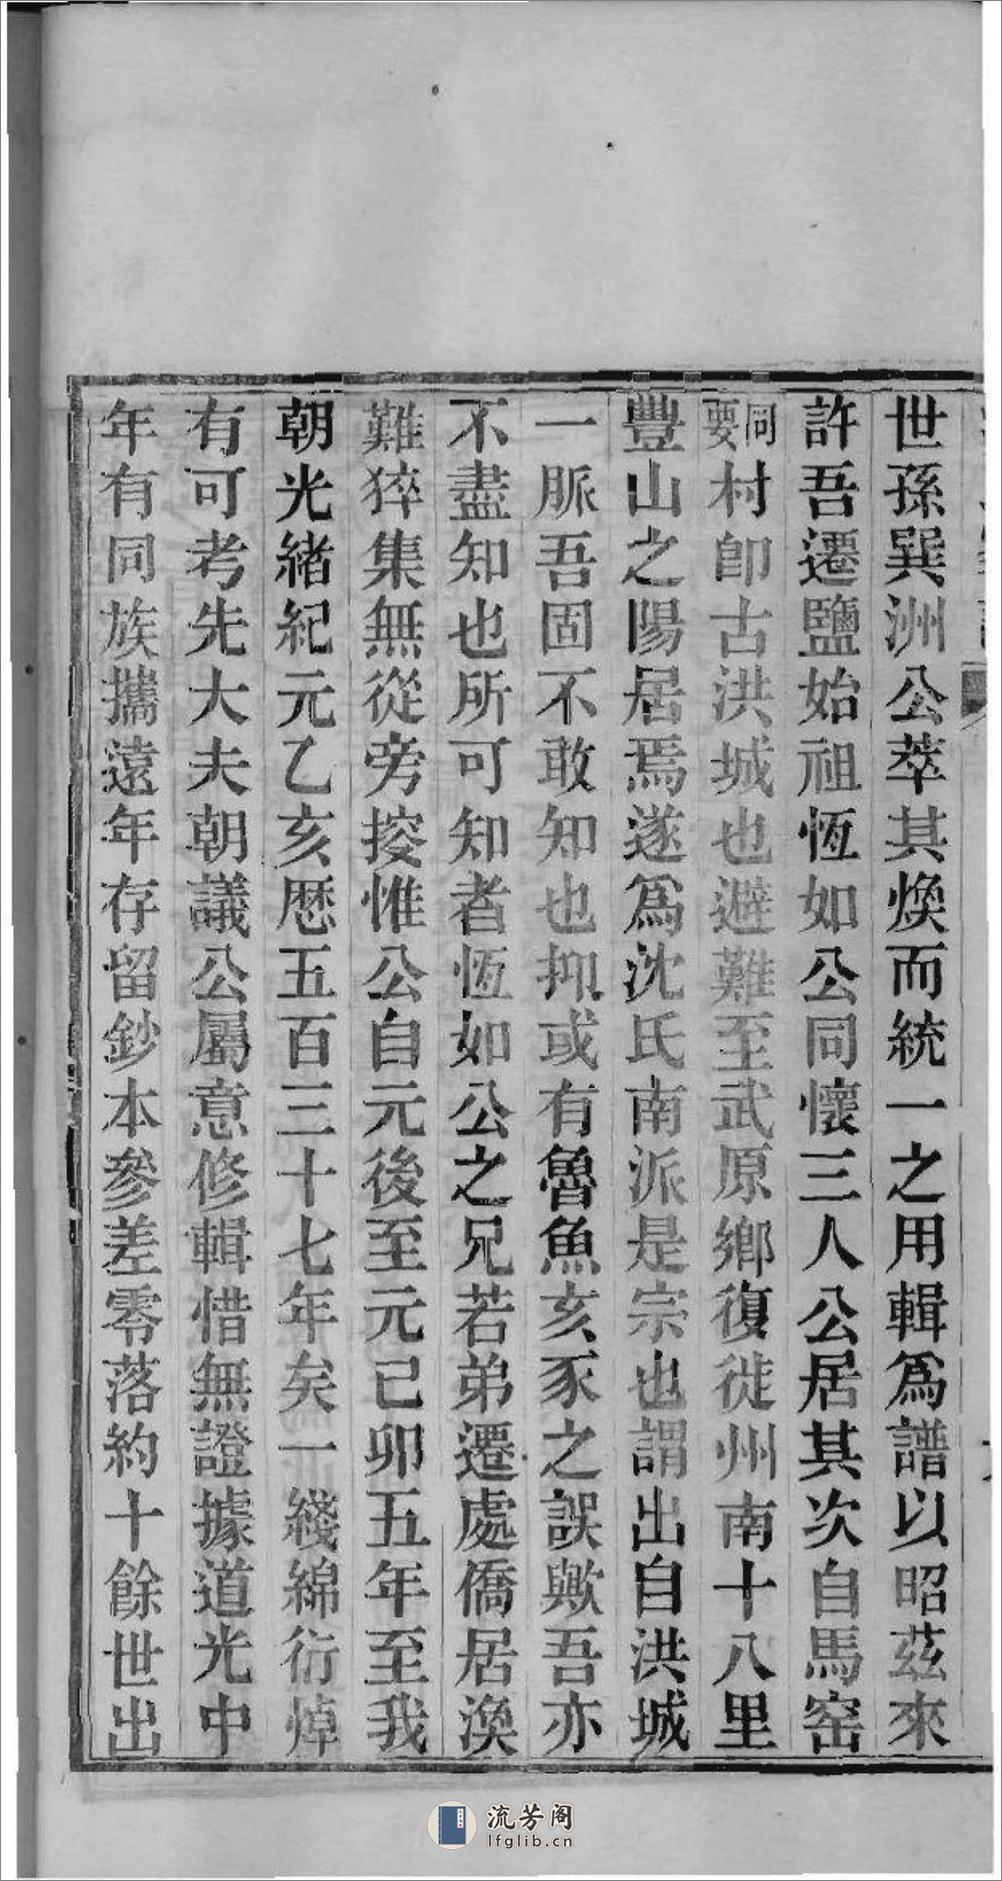 世孫巽洲公萃其煥而統一之用輯爲譜以昭茲來
許吾遷鹽始祖恆如公同懷三人公居其次自馬窑
同要村卽古洪城也避難至武原鄉復徙州南十八里
豐山之陽居焉遂爲沈氏南派是宗也謂出自洪城
一脈吾固不敢知也抑或有魯魚亥豕之誤歟吾亦
不盡知也所可知者恆如公之兄若弟遷處僑居渙
難猝集無從旁按惟公自元後至元己卯五年至我
朝光緒紀元乙亥歷五百三十七年矣一綫綿衍焯
有可考先大夫朝議公屬意修輯惜無證據道光中
年有同族攜遠年存留鈔本參差零落約十餘世出
流芳阁
lfglib.cn